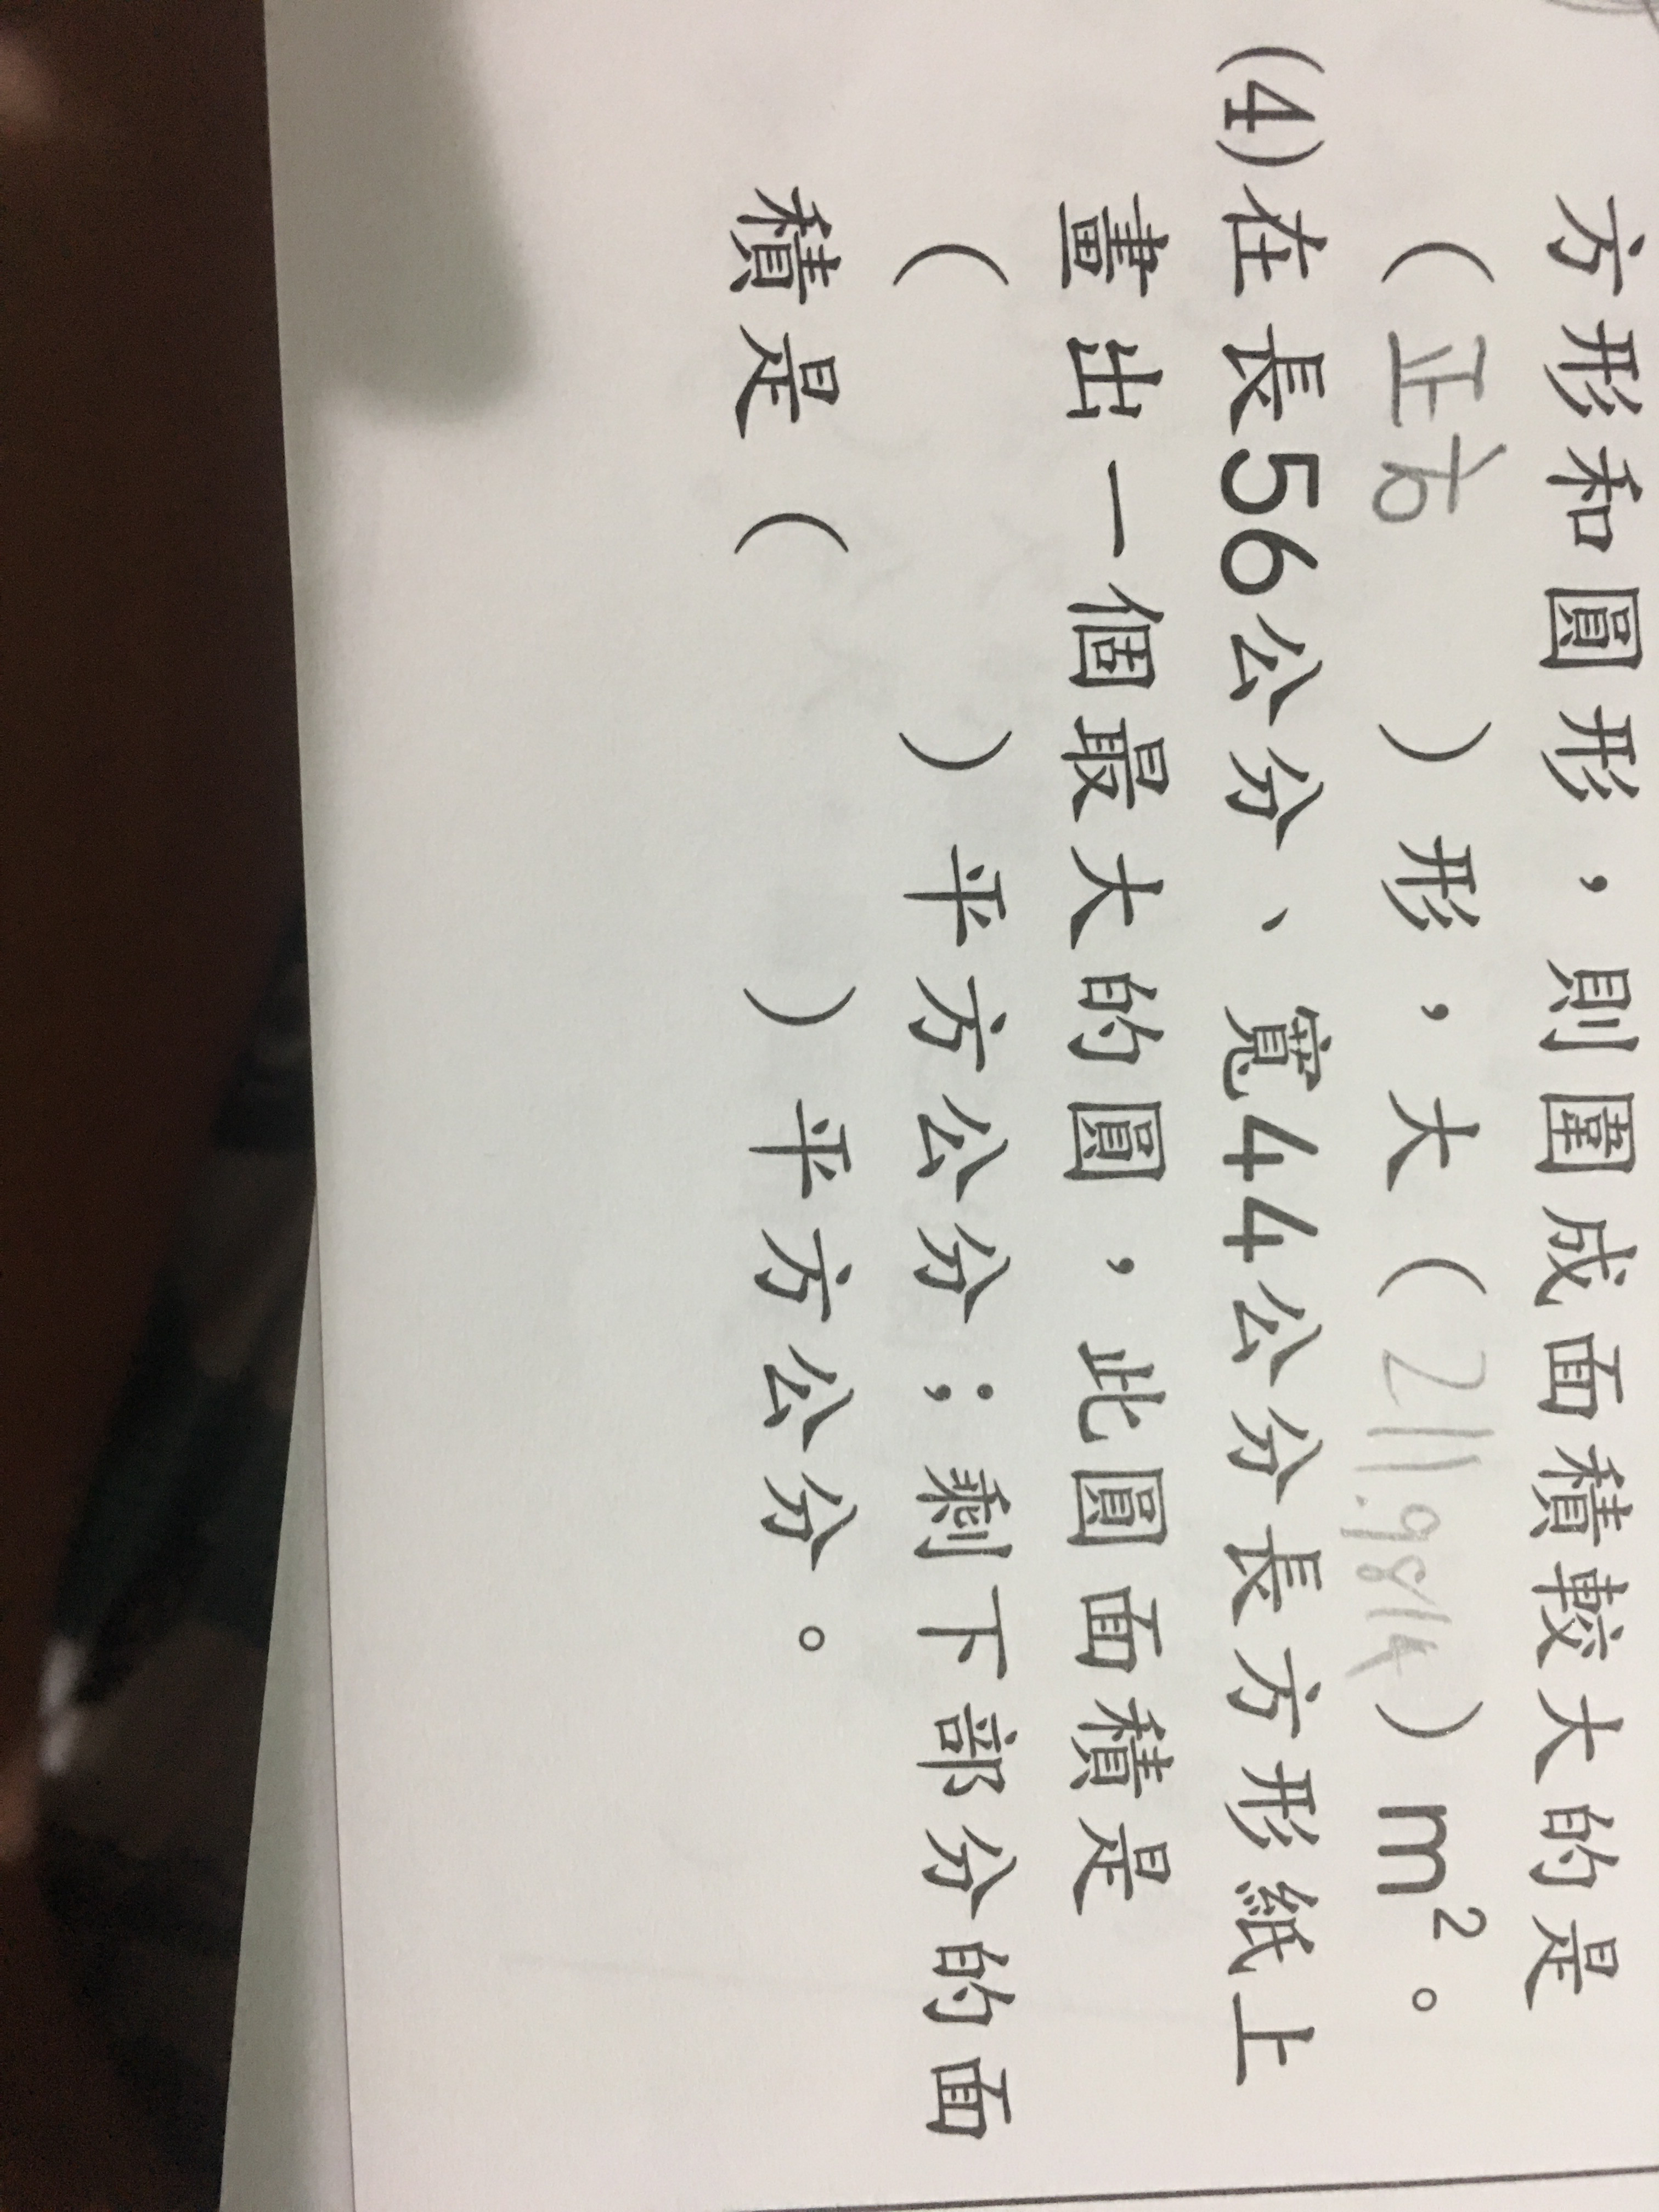 方形和圓形，則圍成面積較大的是
（正方）形，大（211.9814）m²。
(4)在長56公分、寬44公分長方形紙上
畫出一個最大的圓，此圓面積是
（　　　）平方公分；剩下部分的面
積是（　　　）平方公分。